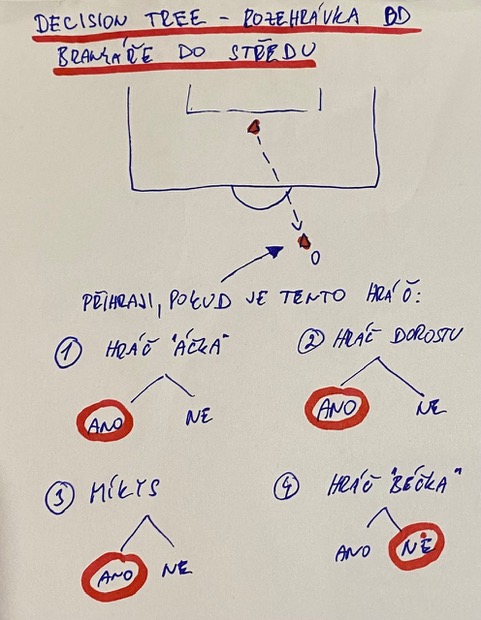 DECISION TREE - ROZEHRÁVKA OD
BRANKÁŘE DO STŘEDU
O
PŘIHRAJI, POKUD JE TENTO HRÁČ:
1 HRÁČ "ÁČKA"
ANO NE
2 HRÁČ DOROSTU
ANO NE
3 MÍKYS
ANO NE
4 HRÁČ "BÉČKA"
ANO NE